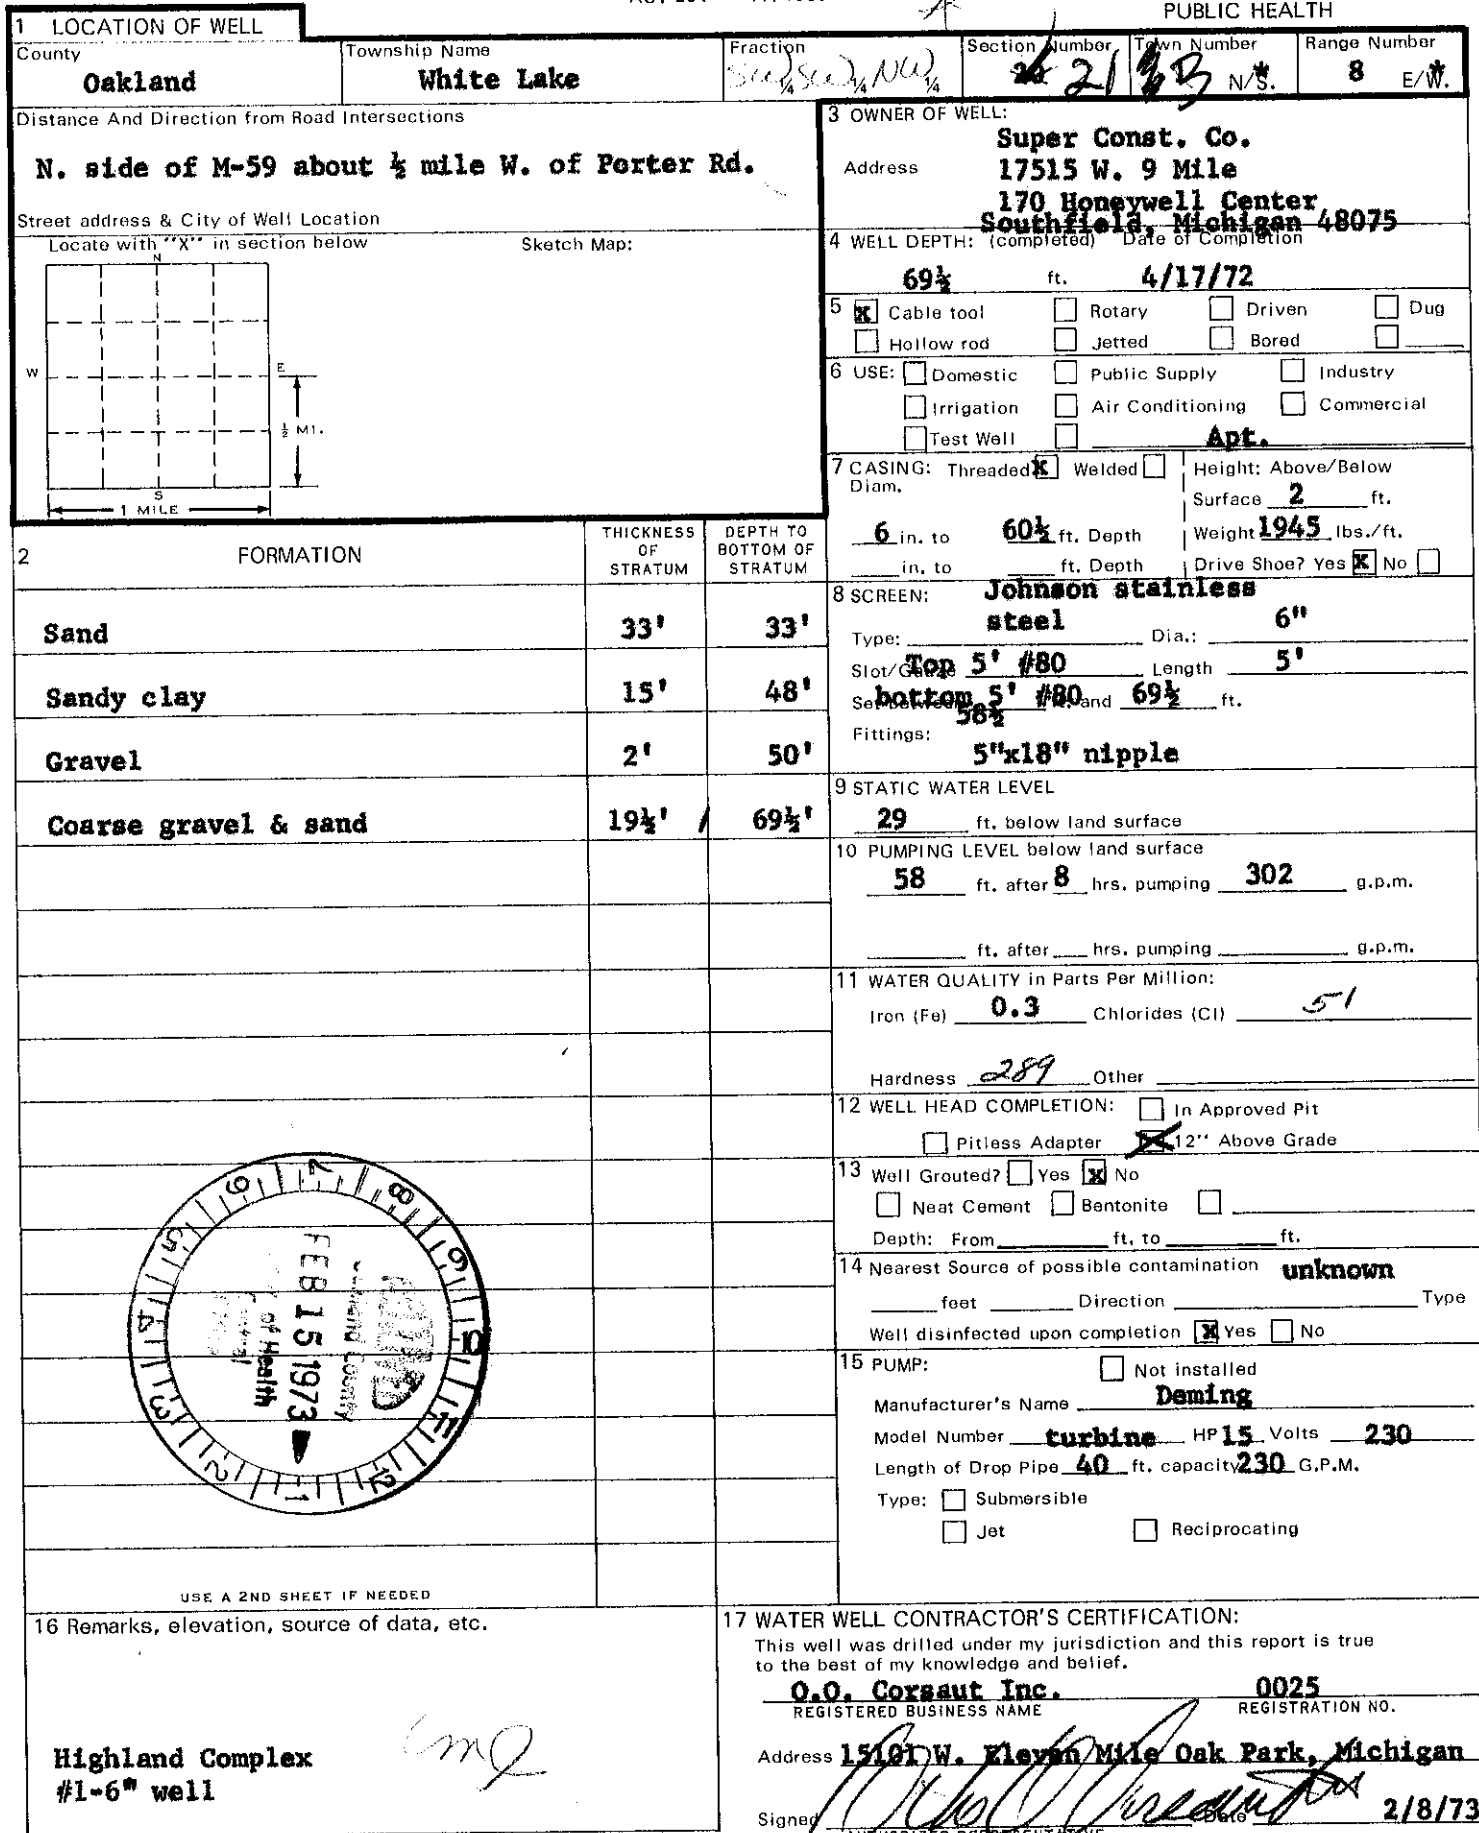 PUBLIC HEALTH
1 LOCATION OF WELL
County
Oakland
Township Name
White Lake
Fraction
SW 1/4 SW 1/4 NW 1/4
Section Number
21
Town Number
3 N/S.
Range Number
8 E/W.
Distance And Direction from Road Intersections
N. side of M-59 about ½ mile W. of Porter Rd.
Street address & City of Well Location
Locate with "X" in section below
Sketch Map:
N
W
E
S
½ MI.
1 MILE
2 FORMATION
THICKNESS OF STRATUM
DEPTH TO BOTTOM OF STRATUM
Sand 33' 33'
Sandy clay 15' 48'
Gravel 2' 50'
Coarse gravel & sand 19½' 69½'
USE A 2ND SHEET IF NEEDED
3 OWNER OF WELL:
Super Const. Co.
Address 17515 W. 9 Mile
170 Honeywell Center
Southfield, Michigan 48075
4 WELL DEPTH: (completed) Date of Completion
69½ ft. 4/17/72
5 X Cable tool Rotary Driven Dug
Hollow rod Jetted Bored
6 USE: Domestic Public Supply Industry
Irrigation Air Conditioning Commercial
Test Well Apt.
7 CASING: Threaded X Welded
Diam.
6 in. to 60½ ft. Depth
in. to ft. Depth
Height: Above/Below
Surface 2 ft.
Weight 1945 lbs./ft.
Drive Shoe? Yes X No
8 SCREEN: Johnson stainless
steel
Type: Dia.: 6"
Slot/Gauze Top 5' #80 Length 5'
Set between bottom 5' #80 and 69½ ft.
58½
Fittings:
5"x18" nipple
9 STATIC WATER LEVEL
29 ft. below land surface
10 PUMPING LEVEL below land surface
58 ft. after 8 hrs. pumping 302 g.p.m.
ft. after hrs. pumping g.p.m.
11 WATER QUALITY in Parts Per Million:
Iron (Fe) 0.3 Chlorides (Cl) 51
Hardness 289 Other
12 WELL HEAD COMPLETION: In Approved Pit
Pitless Adapter X 12" Above Grade
13 Well Grouted? Yes X No
Neat Cement Bentonite
Depth: From ft. to ft.
14 Nearest Source of possible contamination unknown
feet Direction Type
Well disinfected upon completion X Yes No
15 PUMP: Not installed
Manufacturer's Name Deming
Model Number turbine HP 15 Volts 230
Length of Drop Pipe 40 ft. capacity 230 G.P.M.
Type: Submersible
Jet Reciprocating
1 2 3 4 5 6 7 8 9 10 11 12
County
FEB 15 1973
of Health
16 Remarks, elevation, source of data, etc.
Highland Complex
#1-6" well
17 WATER WELL CONTRACTOR'S CERTIFICATION:
This well was drilled under my jurisdiction and this report is true
to the best of my knowledge and belief.
O.O. Corsaut Inc. 0025
REGISTERED BUSINESS NAME REGISTRATION NO.
Address 15101 W. Eleven Mile Oak Park, Michigan
Signed Date 2/8/73